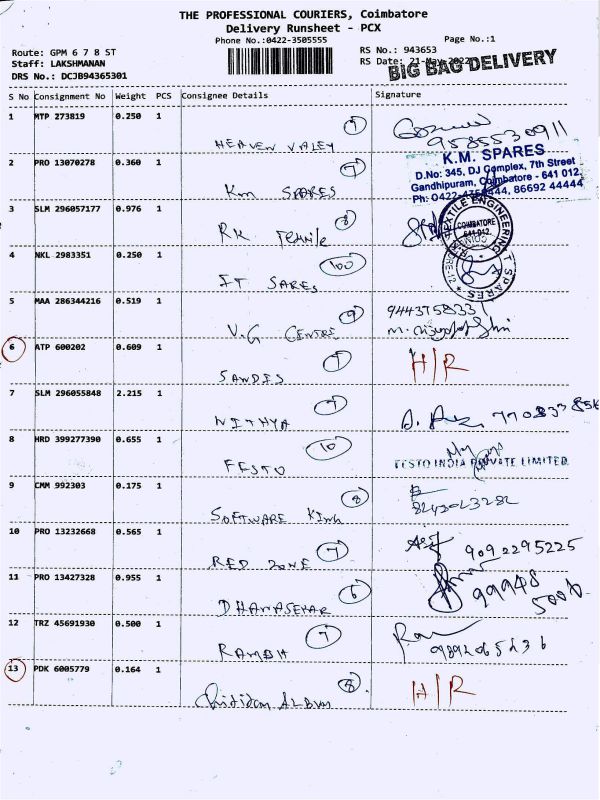 THE PROFESSIONAL COURIERS, Coimbatore
Delivery Runsheet - PCX
Phone No.:0422-3505555
Page No.:1
Route: GPM 6 7 8 ST
RS No.: 943653
Staff: LAKSHMANAN
RS Date: 21-
DRS No.: DCJB94365301
BIG BAG DELIVERY
S No Consignment No Weight PCS Consignee Details Signature
1 MTP 273819 0.250 1 HEAVEN VALEY 7
9585530911
2 PRO 13070278 0.360 1 Km SPARES 7
K.M. SPARES
D.No: 345, DJ Complex, 7th Street
Gandhipuram, Coimbatore - 641 012.
Ph: 0422- 86692 44444
3 SLM 296057177 0.976 1 RK 8
TEXTILE ENGINEERING
COIMBATORE
641 012.
4 NKL 2983351 0.250 1 IT SARES 100
IT SPARES
5 MAA 286344216 0.519 1 V.G CENTRE 9
6 ATP 600202 0.609 1 H/R
7 SLM 296055848 2.215 1 NITHYA 7
8 HRD 399277390 0.655 1 FESTO 10
FESTO INDIA PRIVATE LIMITED
9 CMM 992303 0.175 1 SOFTWARE KING 8
10 PRO 13232668 0.565 1 RED ZONE 7
9092295225
11 PRO 13427328 0.955 1 DHANASEKAR 6
99948
12 TRZ 45691930 0.500 1 7
13 PDK 6005779 0.164 1 ALBUM 8 H/R